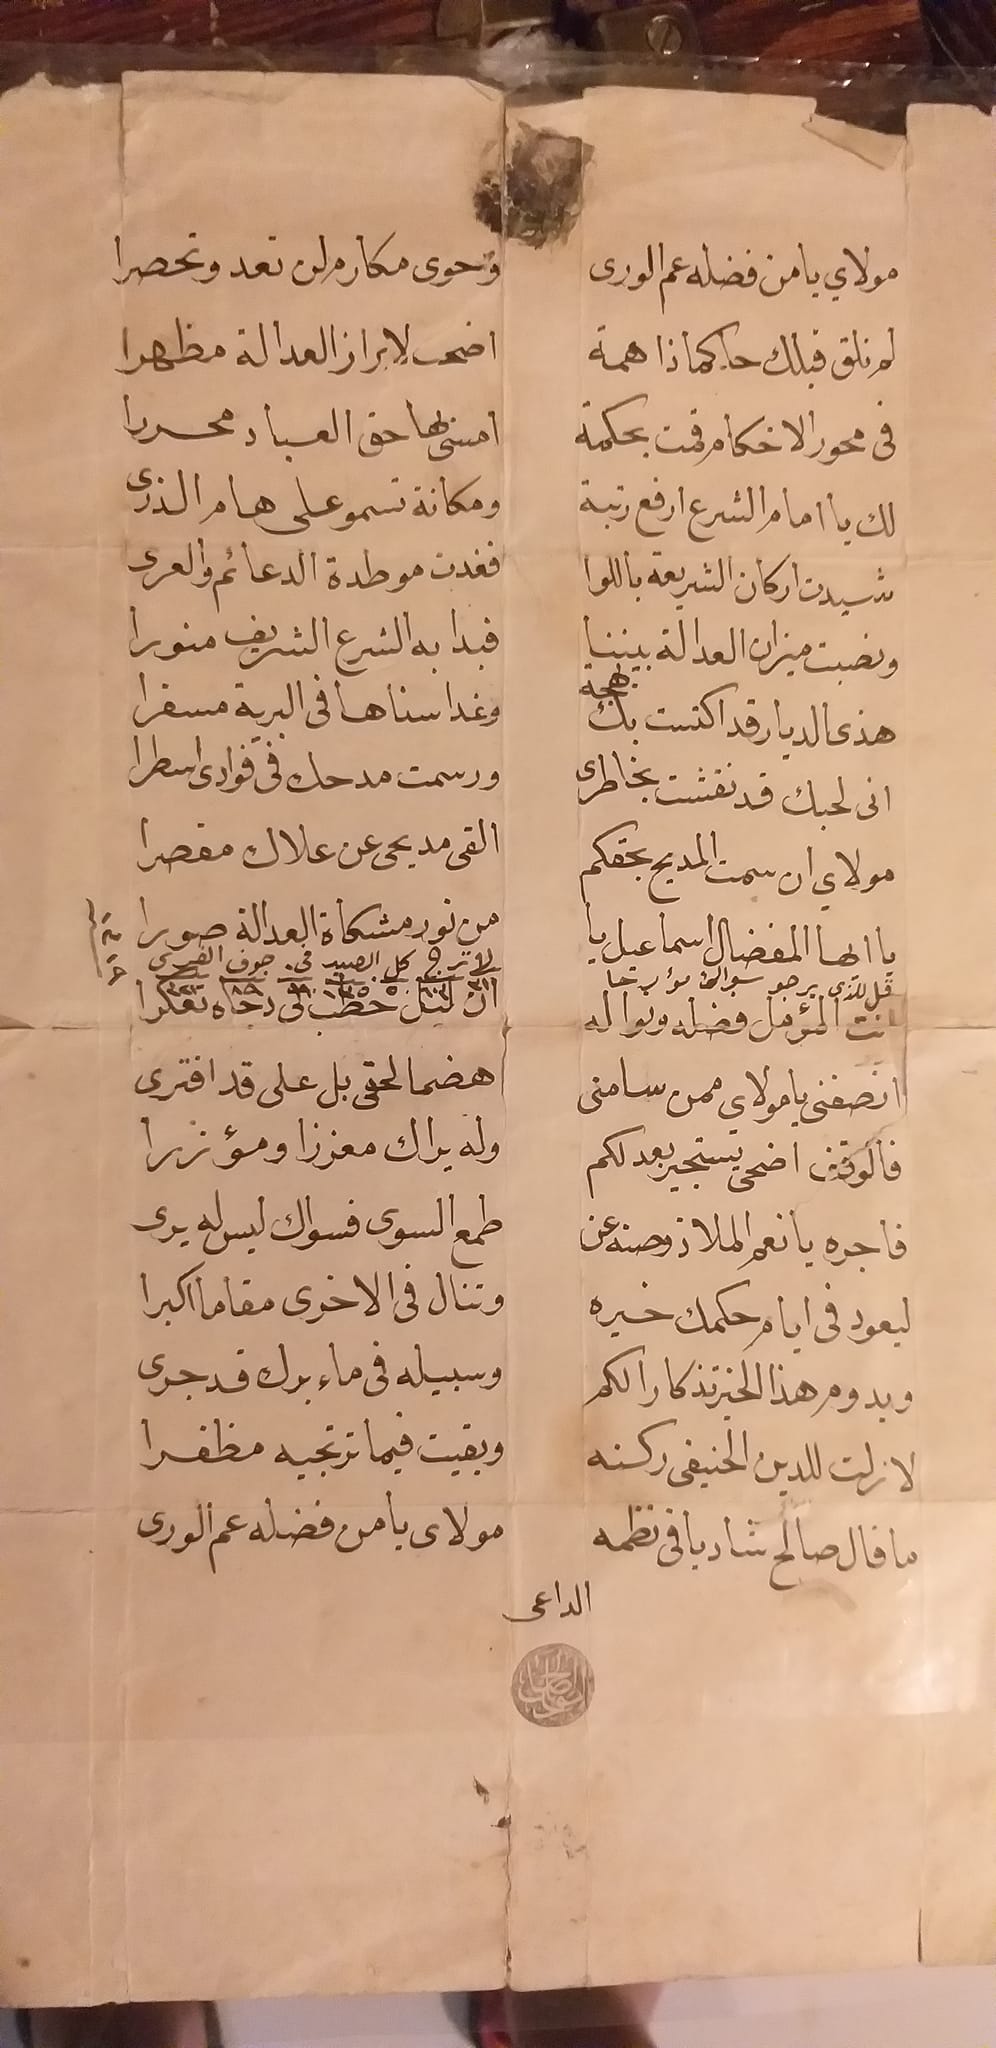 مولاي يا من فضله عم الورى وحوى مكارم لن تعد وتحصرا
لم نلق قبلك حاكما ذا همة اضحت لابراز العدالة مظهرا
فى محور الاحكام قمت بحكمة امسى بها حق العباد محررا
لك يا امام الشرع ارفع رتبة ومكانة تسمو على هام الذرى
شيدت اركان الشريعة باللوا فغدت موطدة الدعائم والعرى
ونصبت ميزان العدالة بيننا فبدا به الشرع الشريف منورا
هذى الديار قد اكتست بك بهجة وغدا سناها فى البرية مسفرا
انى لحبك قد نقشت بخاطرى ورسمت مدحك فى فوادى اسطرا
مولاي ان سمت المديح بحقكم القى مديحى عن علاك مقصرا
يا ايها المفضال اسماعيل يا من نور مشكاة العدالة صورا
قل للذى يرجو سواك مؤرخا لا ترج كل الصيد فى جوف الفرى
٣١ ٦٠٣ ٥٠ ١٣٥ ٩٠ ٨٩
انت المؤمل فضله ونواله ان ليل خطب فى دجاه تعكرا
انصفنى يا مولاي ممن سامنى هضما لحقى بل على قد افترى
فالوقف اضحى يستجير بعدلكم وله يراك معززا ومؤزرا
فاجره يا نعم الملاذ وصنه عن طمع السوى فسواك ليس له يرى
ليعود فى ايام حكمك خيره وتنال فى الاخرى مقاما اكبرا
ويدوم هذا الخير تذكارا لكم وسبيله فى ماء برك قد جرى
لا زلت للدين الحنيفى ركنه وبقيت فيما ترتجيه مظفرا
ما قال صالح شاديا فى نظمه مولاى يا من فضله عم الورى
الداعى